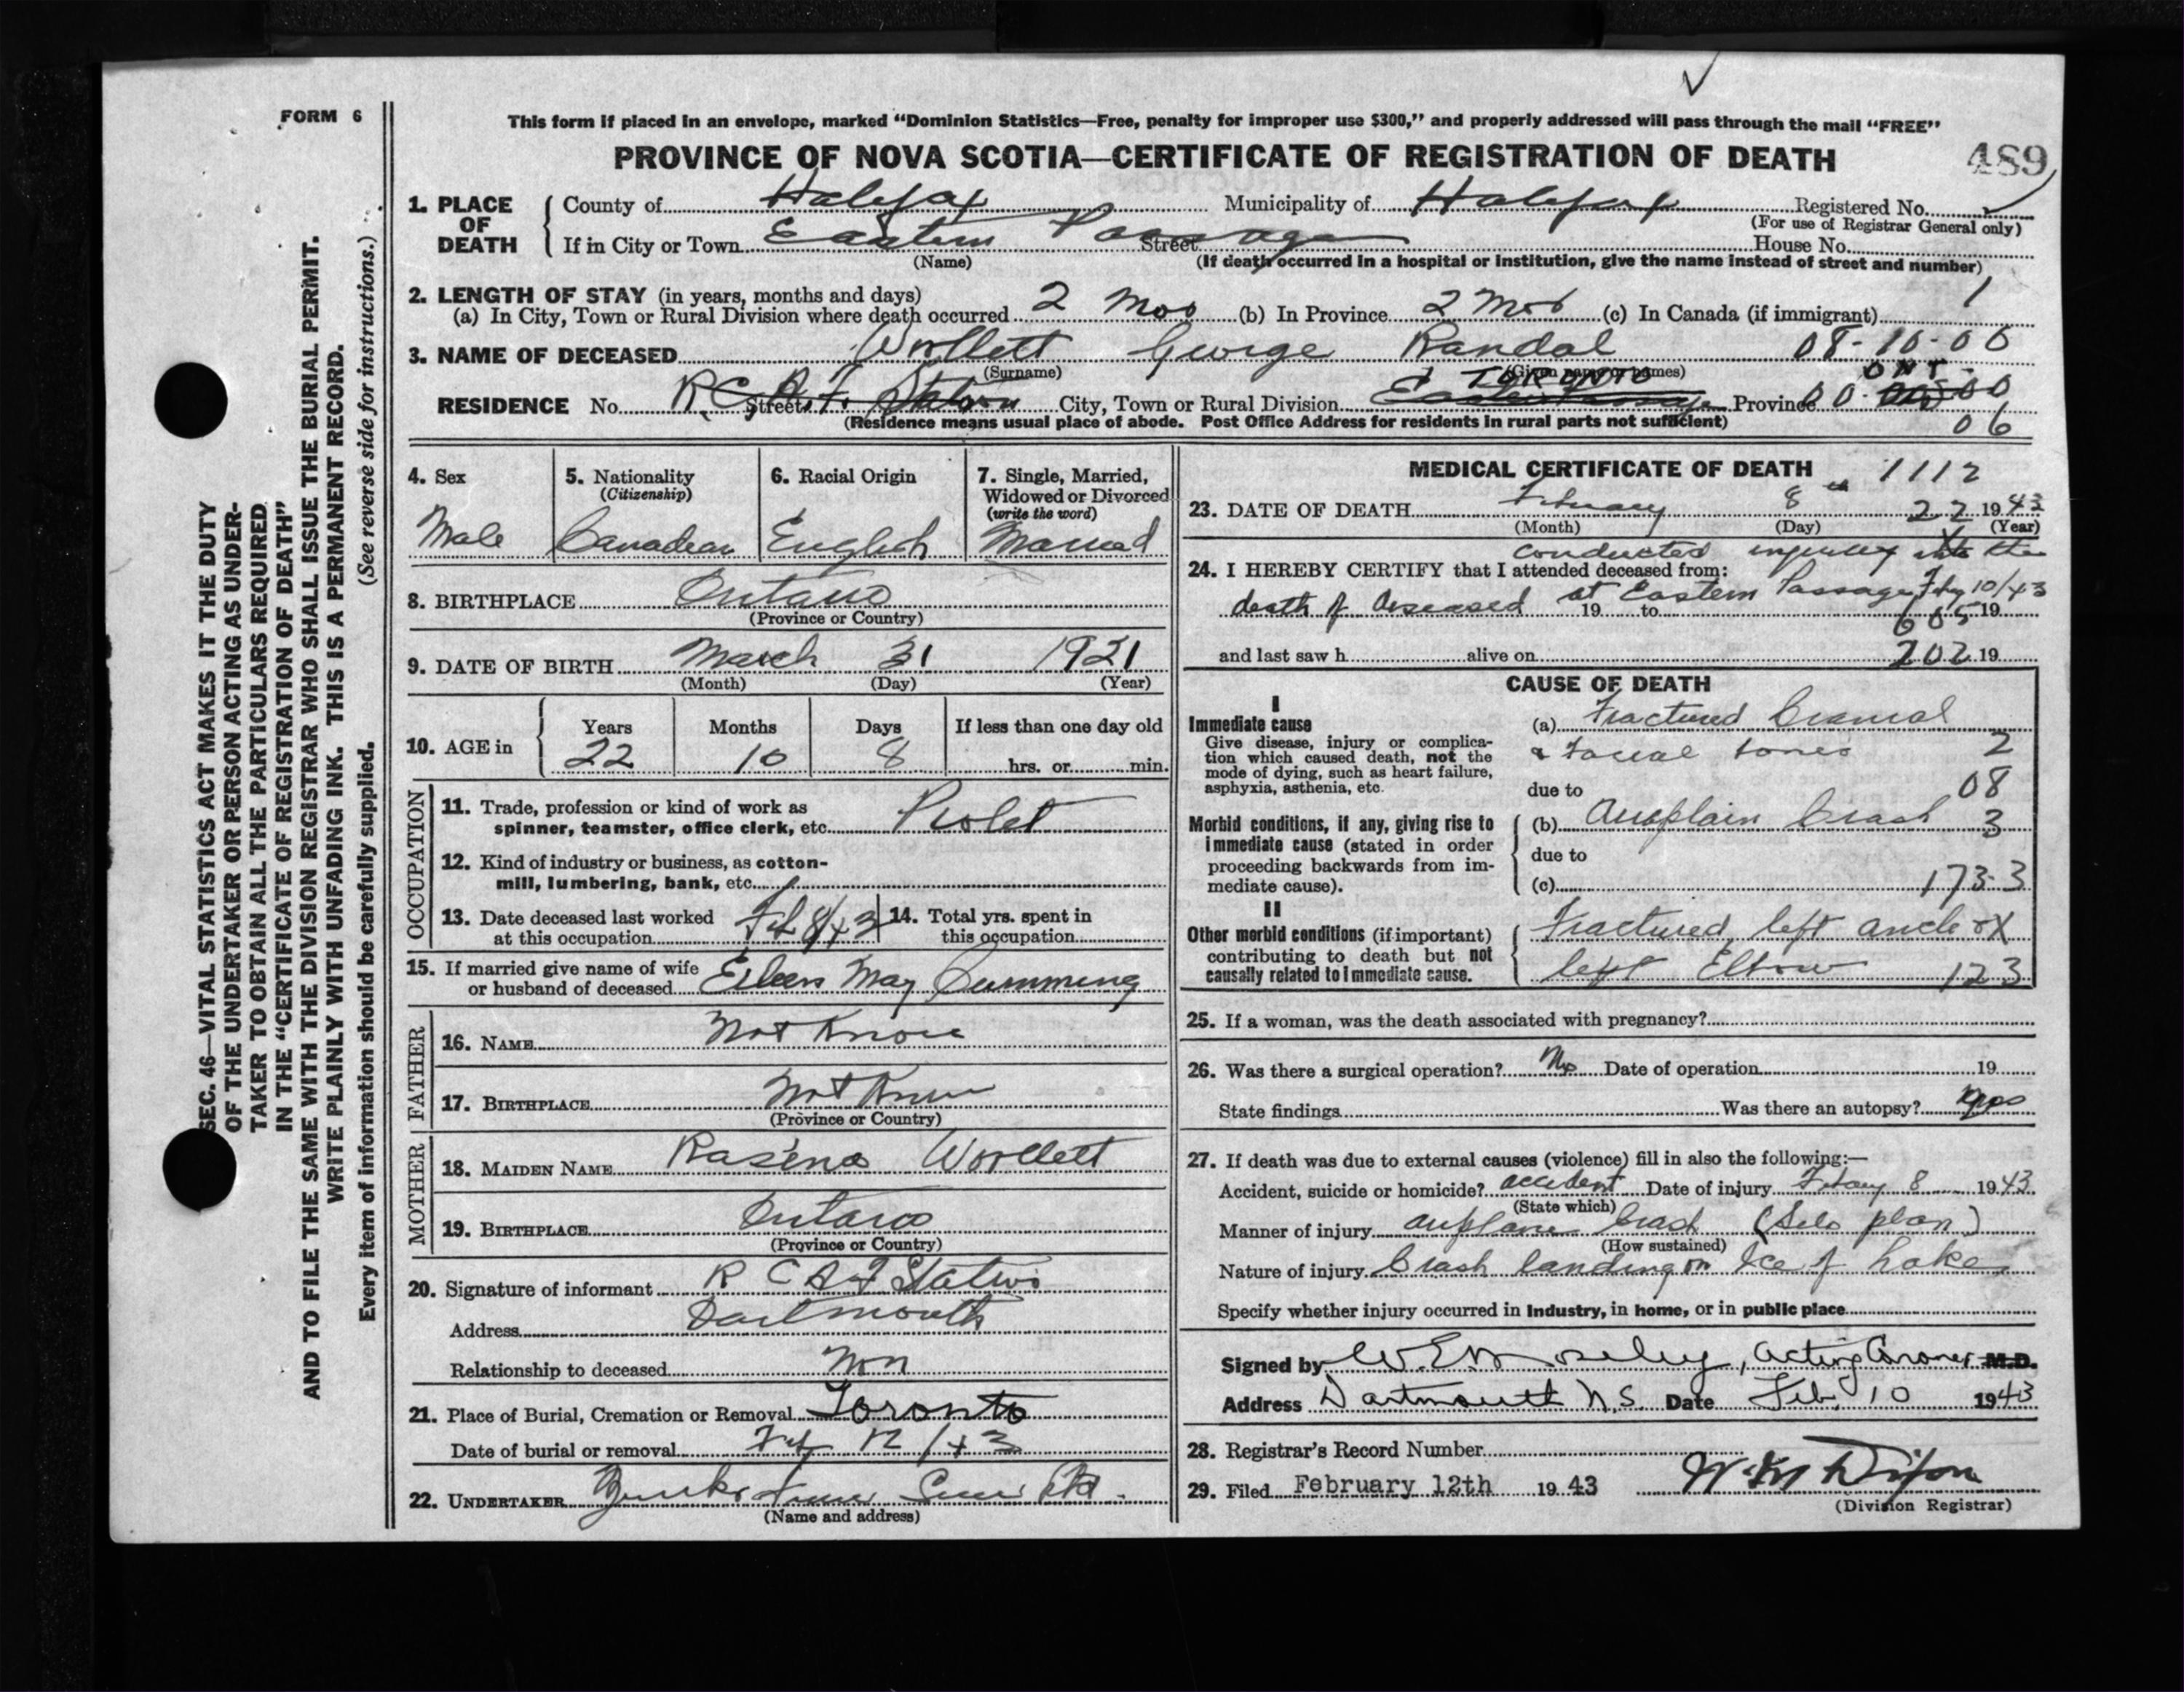 FORM 6
This form if placed in an envelope, marked “Dominion Statistics—Free, penalty for improper use $300,” and properly addressed will pass through the mail “FREE”
PROVINCE OF NOVA SCOTIA—CERTIFICATE OF REGISTRATION OF DEATH
489
1. PLACE OF DEATH County of Halifax Municipality of Halifax Registered No.
(For use of Registrar General only)
If in City or Town Eastern Passage Street House No.
(Name) (If death occurred in a hospital or institution, give the name instead of street and number)
2. LENGTH OF STAY (in years, months and days) 1
(a) In City, Town or Rural Division where death occurred 2 Mos (b) In Province 2 Mos (c) In Canada (if immigrant)
3. NAME OF DECEASED Wollett George Randal 08-10-00
(Surname) (Given name or names)
TORONTO ONT.
RESIDENCE No. R.C.A.F. Station Street City, Town or Rural Division Eastern Passage Province 00-00
(Residence means usual place of abode. Post Office Address for residents in rural parts not sufficient) 06
4. Sex Male
5. Nationality (Citizenship) Canadean
6. Racial Origin English
7. Single, Married, Widowed or Divorced (write the word) Married
8. BIRTHPLACE Ontario
(Province or Country)
9. DATE OF BIRTH March 31 1921
(Month) (Day) (Year)
10. AGE in Years 22 Months 10 Days 8 If less than one day old hrs. or min.
OCCUPATION
11. Trade, profession or kind of work as spinner, teamster, office clerk, etc. Piolet
12. Kind of industry or business, as cotton-mill, lumbering, bank, etc.
13. Date deceased last worked at this occupation Feb 8/43
14. Total yrs. spent in this occupation
15. If married give name of wife or husband of deceased Eileen May Cumming
FATHER
16. NAME Not Know
17. BIRTHPLACE Not Know
(Province or Country)
MOTHER
18. MAIDEN NAME Rasena Worllett
19. BIRTHPLACE Ontario
(Province or Country)
20. Signature of informant R C A F Station
Address Dartmouth
Relationship to deceased Non
21. Place of Burial, Cremation or Removal Toronto
Date of burial or removal Feb 12/43
22. UNDERTAKER
(Name and address)
MEDICAL CERTIFICATE OF DEATH 1112
23. DATE OF DEATH February 8th 22 1943
(Month) (Day) (Year)
conducted inquiry into the
24. I HEREBY CERTIFY that I attended deceased from:
death of deceased at Eastern Passage Feby 10/43
19 to 605 19
and last saw h alive on 202 19
CAUSE OF DEATH
I
Immediate cause
Give disease, injury or complication which caused death, not the mode of dying, such as heart failure, asphyxia, asthenia, etc.
(a) Fractured Cranial
& Facial bones 2
due to 08
Morbid conditions, if any, giving rise to immediate cause (stated in order proceeding backwards from immediate cause).
(b) Auoplain Crash 3
due to
(c) 173-3
II
Other morbid conditions (if important) contributing to death but not causally related to immediate cause.
Fractured left ancle
left Elbow 123
25. If a woman, was the death associated with pregnancy?
26. Was there a surgical operation? No Date of operation 19
State findings Was there an autopsy?
27. If death was due to external causes (violence) fill in also the following:—
Accident, suicide or homicide? accident Date of injury Febary 8 1943
(State which)
Manner of injury airplane Crash (Solo plan)
(How sustained)
Nature of injury Crash landing on Ice of Lake
Specify whether injury occurred in Industry, in home, or in public place
Signed by W E Moseley, Acting Coroner M.D.
Address Dartmouth N.S. Date Feb. 10 1943
28. Registrar’s Record Number
29. Filed February 12th 1943 W. M. Dixon
(Division Registrar)
SEC. 46—VITAL STATISTICS ACT MAKES IT THE DUTY
OF THE UNDERTAKER OR PERSON ACTING AS UNDER-
TAKER TO OBTAIN ALL THE PARTICULARS REQUIRED
IN THE “CERTIFICATE OF REGISTRATION OF DEATH”
AND TO FILE THE SAME WITH THE DIVISION REGISTRAR WHO SHALL ISSUE THE BURIAL PERMIT.
WRITE PLAINLY WITH UNFADING INK. THIS IS A PERMANENT RECORD.
Every item of information should be carefully supplied. (See reverse side for instructions.)